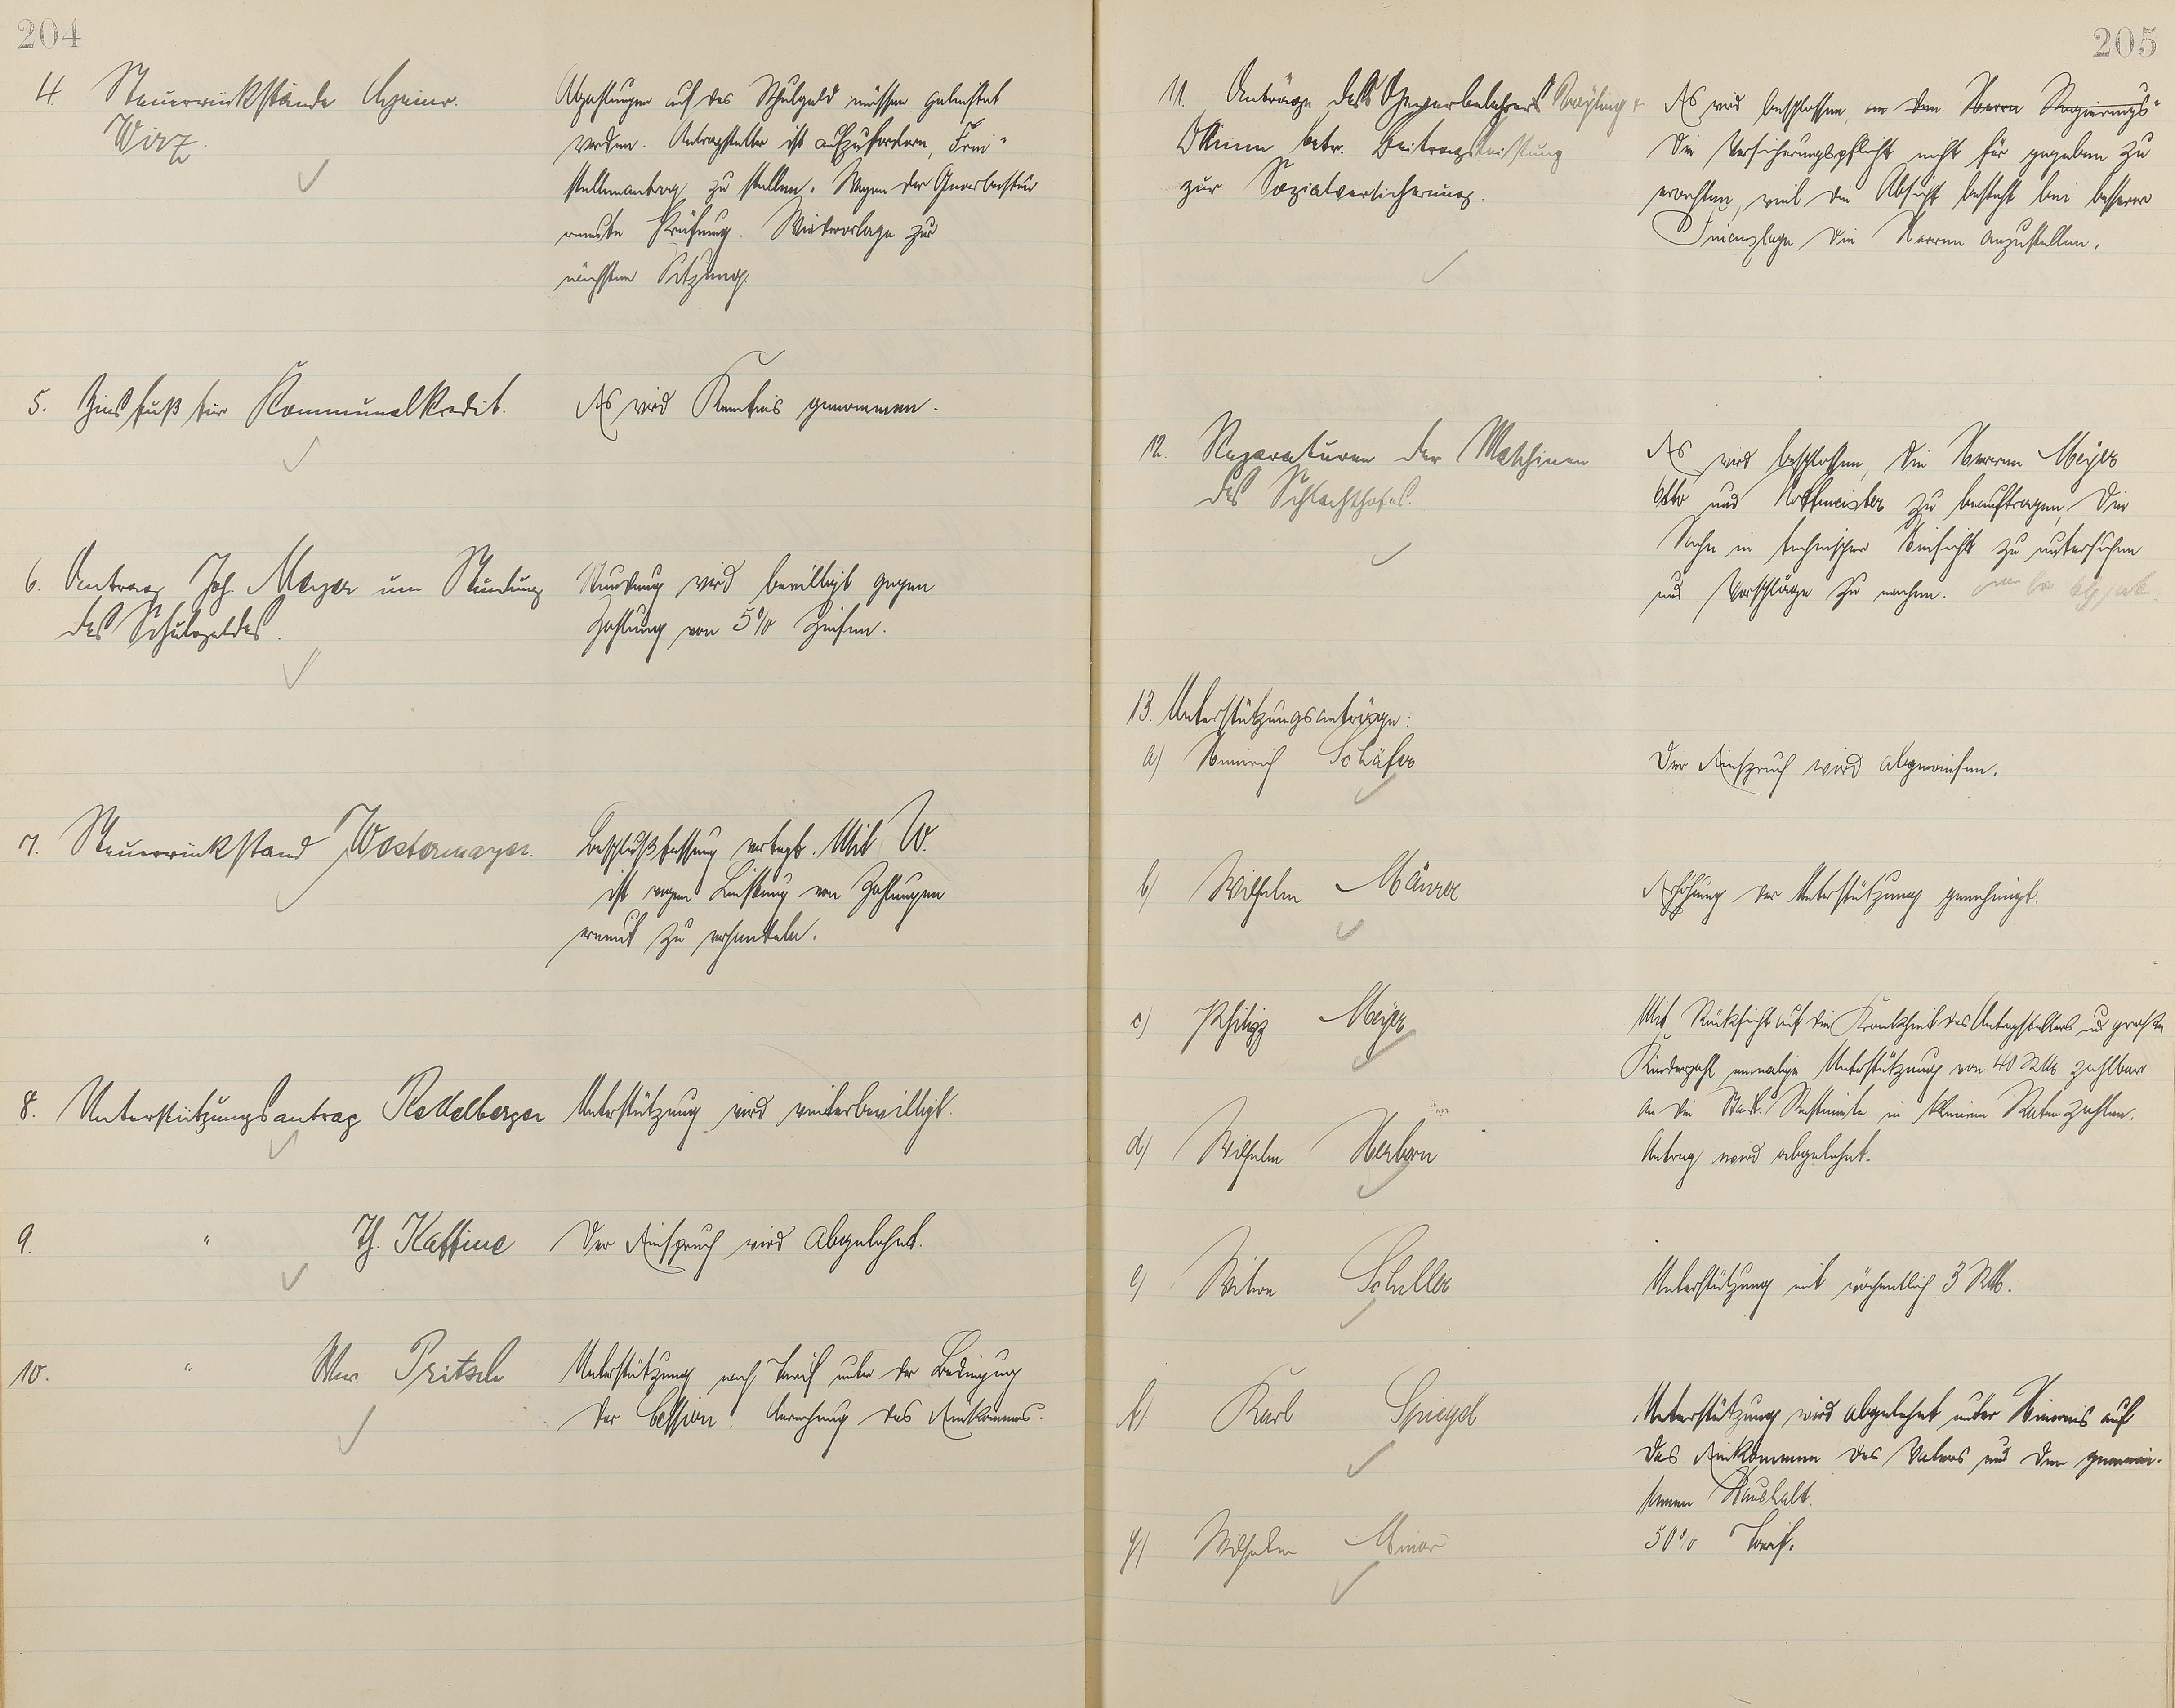 204
4. Steuerrückstände
Wirz.
Abzahlungen auf das Schulgeld müssen geleistet
werden. Antragsteller ist aufzufordern, Frei-
stellenantrag zu stellen. Wegen der Gewerbesteuer
erneute Prüfung. Wiedervorlage zur
nächsten Sitzung.
5. Zinsfuß für Kommunalkredit.
Es wird Kenntnis genommen.
6. Antrag Joh. Meyer um Stundung
des Schulgeldes.
Stundung wird bewilligt gegen
Zahlung von 5% Zinsen.
7. Steuerrückstand Westermayer.
Beschlußfassung vertagt. Mit W.
ist wegen Leistung von Zahlungen
erneut zu verhandeln.
8. Unterstützungsantrag Rettelberger
Unterstützung wird weiterbewilligt.
9. " Th. Kaffine
Der Einspruch wird abgelehnt.
10. " Wwe. Pritsch
Unterstützung nach Tarif unter der Bedingung
der Cession. Anrechnung des Einkommens.
205
11. Anträge des Gewerbelehrers +
betr. Beitragsleistung
zur Sozialversicherung.
Es wird beschlossen, an den Herrn Regierungs-
die Versicherungspflicht nicht für gegeben zu
erachten, weil die Absicht besteht bei besserer
Finanzlage die Herren anzustellen.
12. Reparaturen der Maschinen
des Schlachthofes.
Es wird beschlossen, die Herren Meyer
Otto und Hoffmeister zu beauftragen, die
Sache in technischer Hinsicht zu untersuchen
und Vorschläge zu machen.
13. Unterstützungsanträge:
a) Heinrich Schäfer
Der Einspruch wird abgewiesen.
b) Wilhelm Maurer
Erhöhung der Unterstützung genehmigt.
c) Philipp Meyer
Mit Rücksicht auf die Krankheit des Antragstellers u. große
Kinderzahl einmalige Unterstützung von 40 RM zahlbar
an die Stadt. Restmiete in kleinen Raten zahlen.
d) Wilhelm Herborn
Antrag wird abgelehnt.
e) Witwe Schiller
Unterstützung mit wöchentlich 3 RM.
f) Karl Spiegel
Unterstützung wird abgelehnt unter Hinweis auf
das Einkommen des Vaters und den gemein-
samen Haushalt.
g) Wilhelm Minor
50% Tarif.